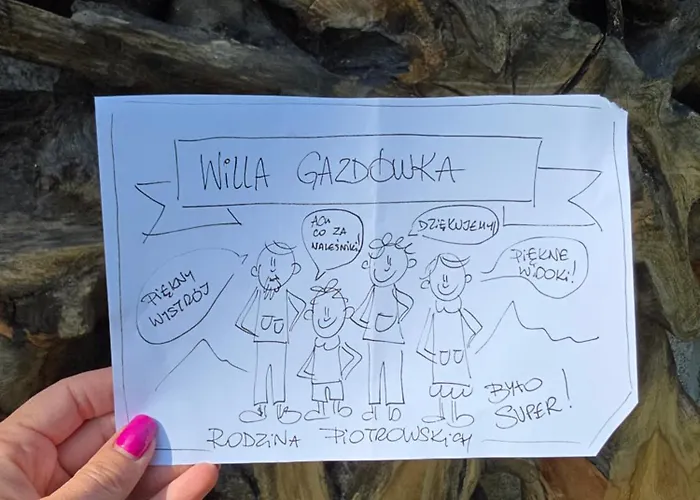 WiLLA GAZDÓWKA
PIĘKNY
WYSTRÓJ
ACH
CO ZA
NALEŚNIKI!
DZIĘKUJEMY!
PIĘKNE
WIDOKI!
BYŁO
SUPER!
RODZINA PIOTROWSKICH